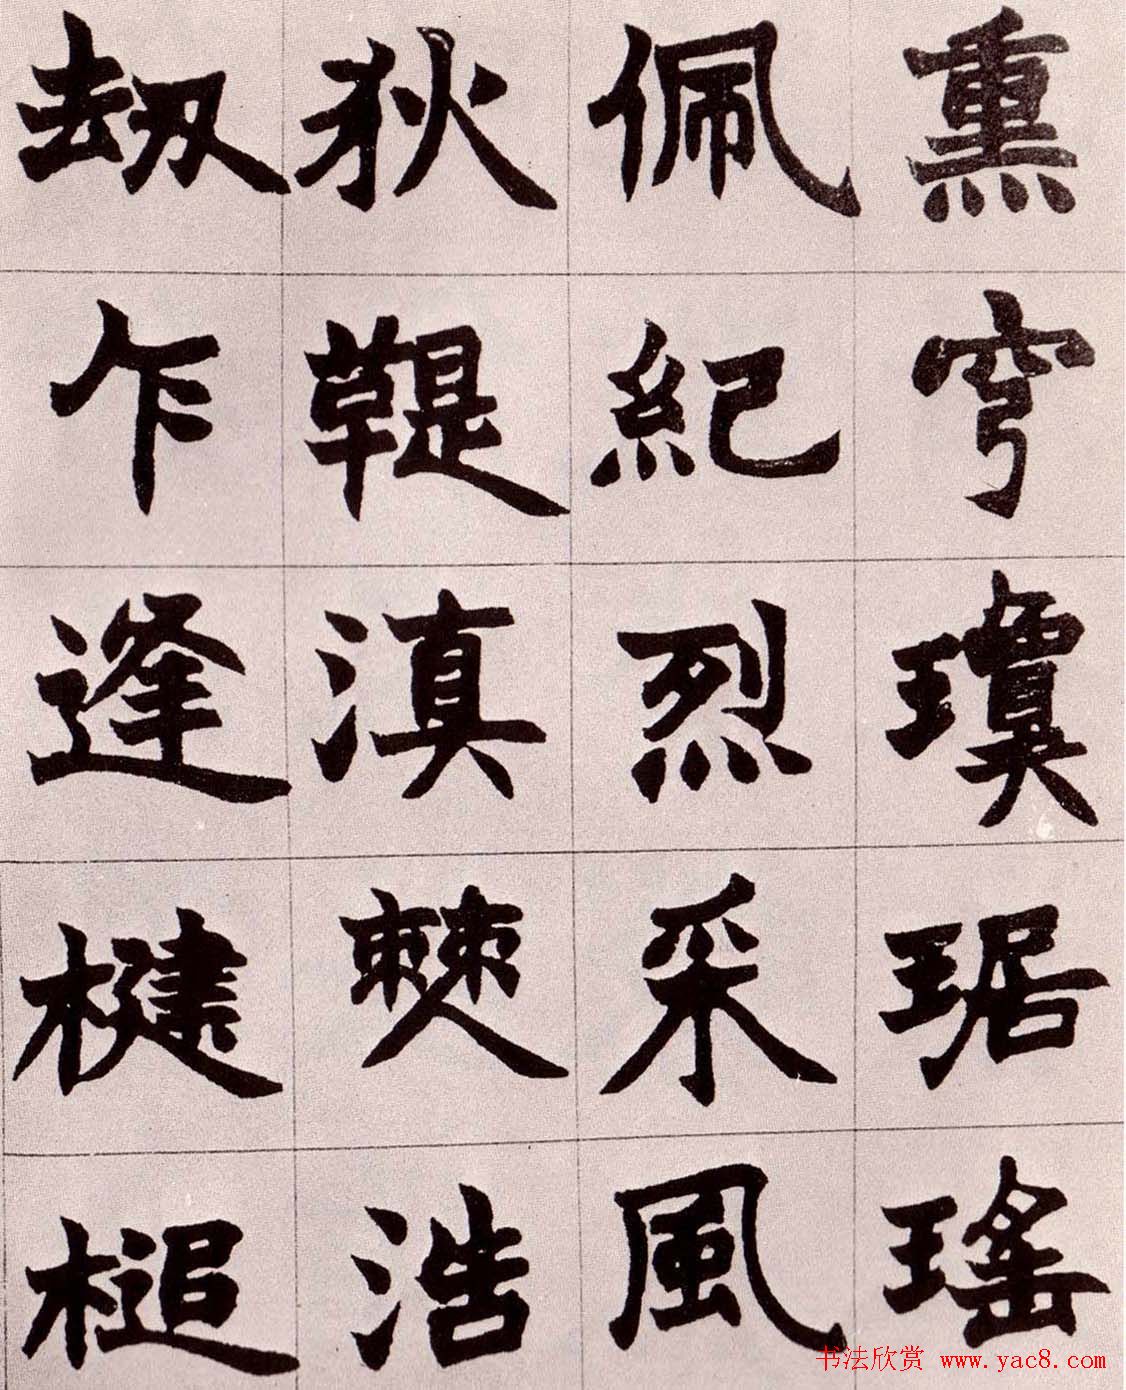 熏穹瓊琚瑤
佩紀烈采風
狄鞮滇僰浩
刼乍逢楗槌
书法欣赏 www.yac8.com